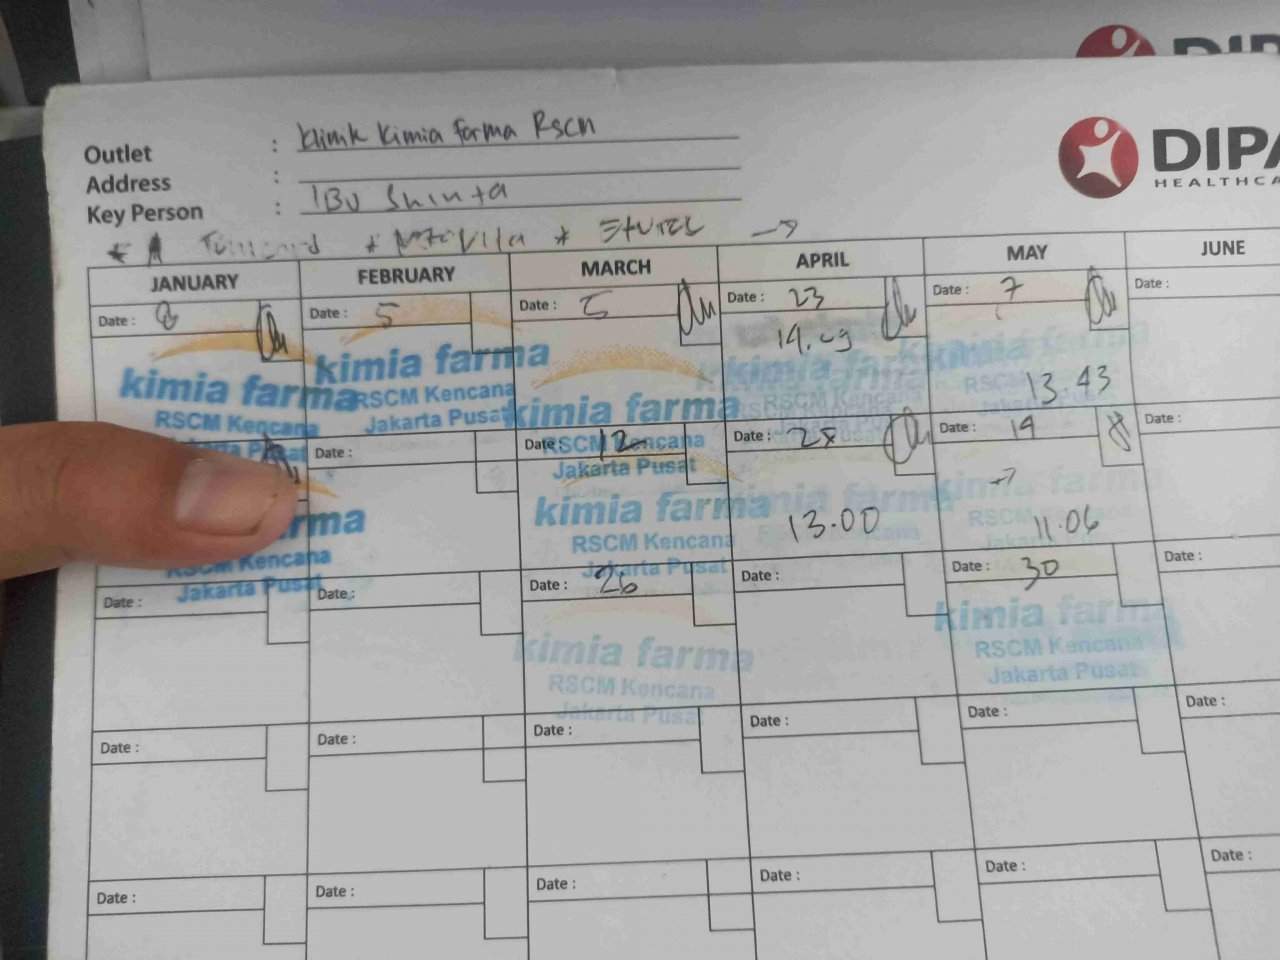 DIPA
Outlet : Klinik Kimia farma Rscm
Address :
Key Person : IBU Shinta
DIPA
HEALTHCA
JANUARY FEBRUARY MARCH APRIL MAY JUNE
Date : 8 Date : 5 Date : 5 Date : 23 Date : 7 Date :
14.09 13.43
kimia farma kimia farma kimia farma
RSCM Kencana RSCM Kencana
Jakarta Pusat
Date : Date : 12 Date : 28 Date : 14 Date :
RSCM Kencana
Jakarta Pusat
13.00 11.06
rma kimia farma
RSCM Kencana
Kencana Jakarta Pusat
Jakarta Pusat
Date : Date : Date : 26 Date : Date : 30 Date :
kimia farma kimia farma
RSCM Kencana RSCM Kencana
Jakarta Pusat Jakarta Pusat
Date : Date : Date : Date : Date : Date :
Date : Date : Date : Date : Date : Date :